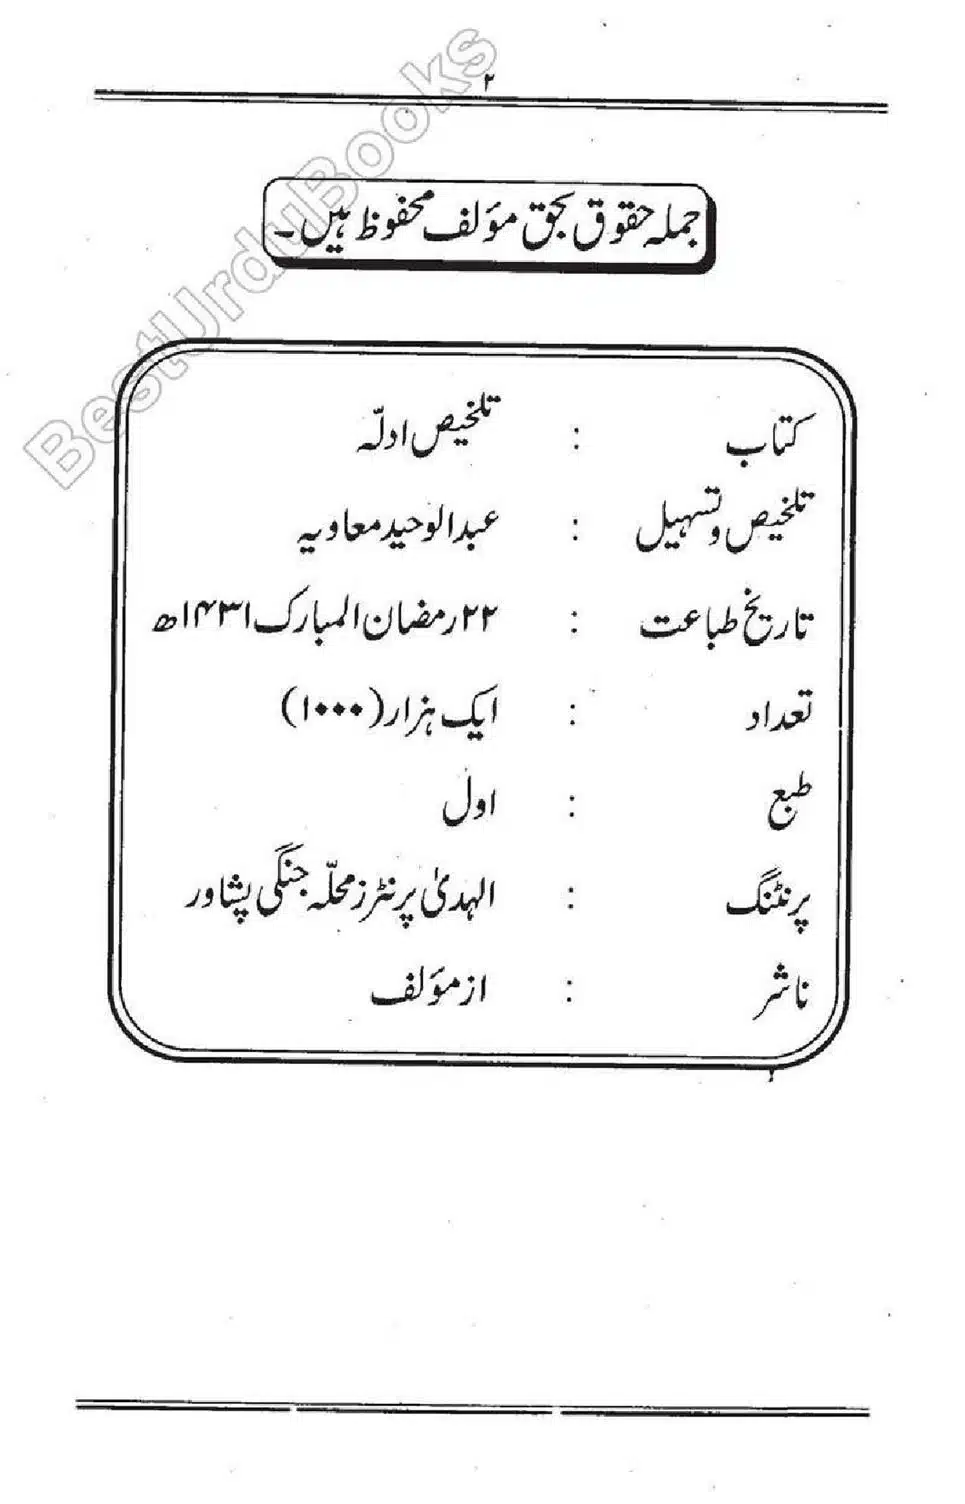 ۲
جملہ حقوق بحق مؤلف محفوظ ہیں۔
کتاب : تلخیص ادلّہ
تلخیص و تسہیل : عبدالوحید معاویہ
تاریخ طباعت : ۲۲ رمضان المبارک ۱۴۳۱ھ
تعداد : ایک ہزار (۱۰۰۰)
طبع : اول
پرنٹنگ : الہدیٰ پرنٹرز محلّہ جنگی پشاور
ناشر : از مؤلف
BestUrduBooks